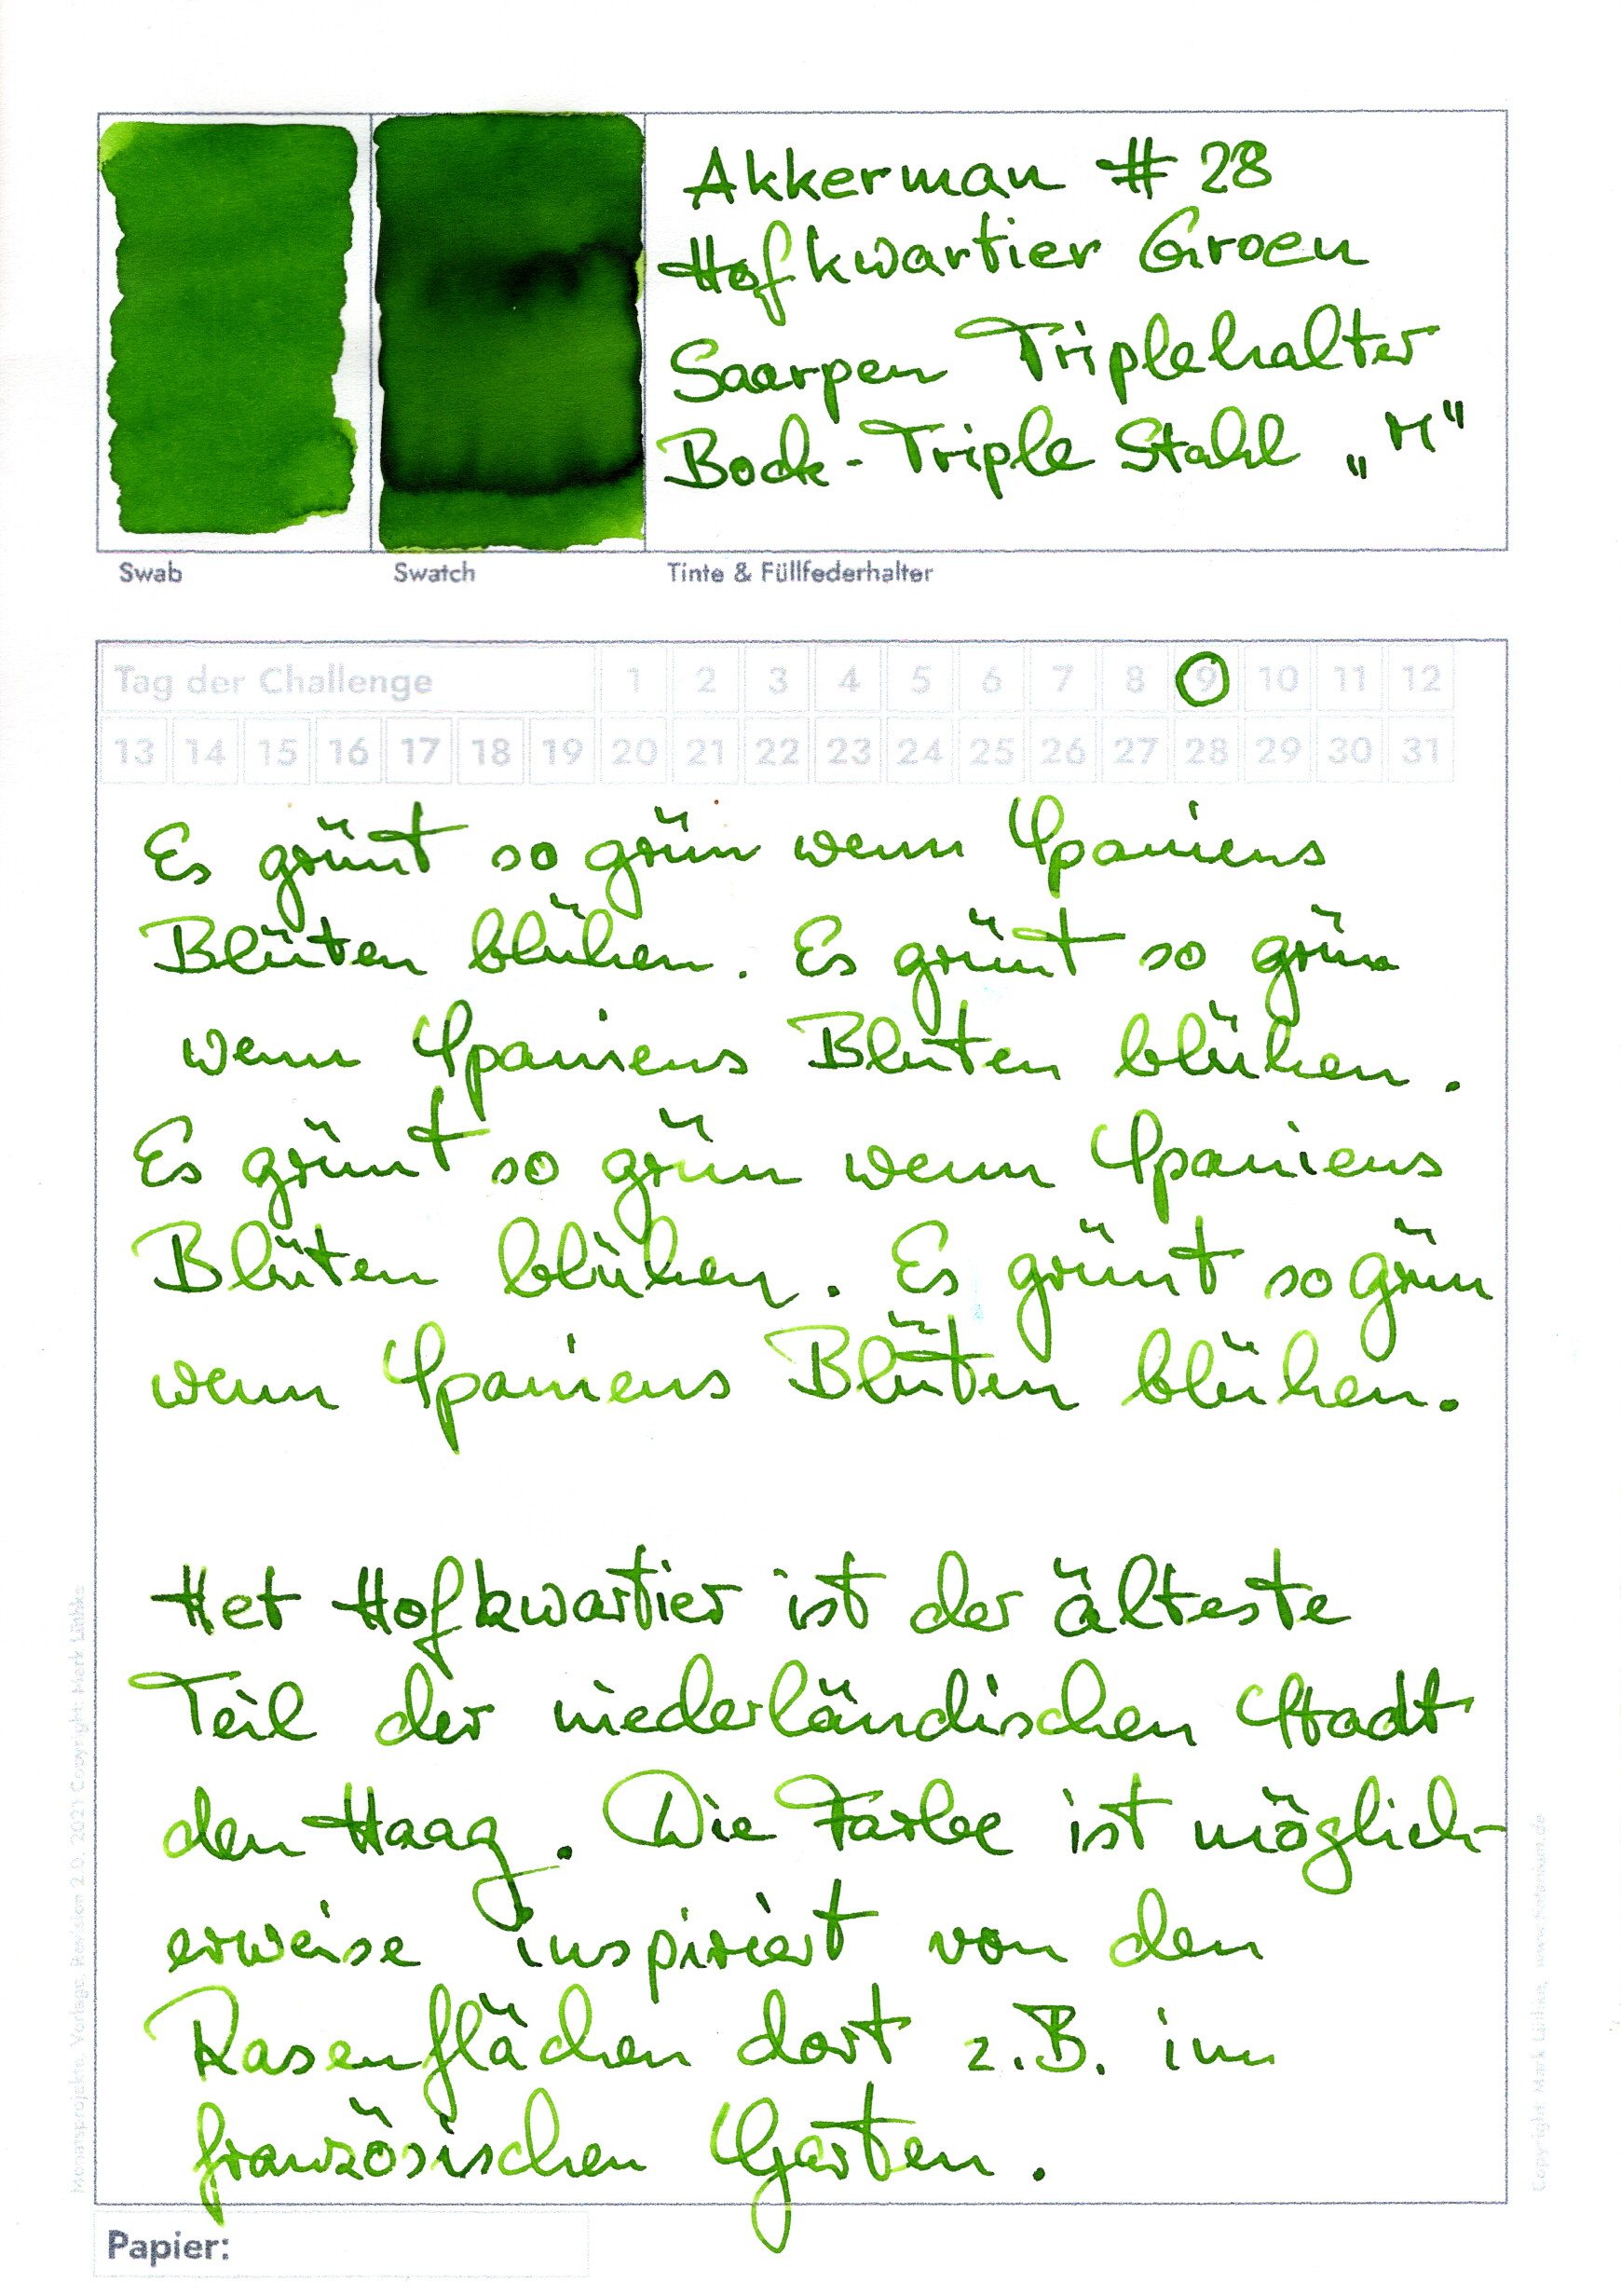 Akkerman # 28
Hofkwartier Groen
Saarpen Triplehalter
Bock-Triple Stahl „M"
Swab
Swatch
Tinte & Füllfederhalter
Tag der Challenge 1 2 3 4 5 6 7 8 9 10 11 12
13 14 15 16 17 18 19 20 21 22 23 24 25 26 27 28 29 30 31
Es grünt so grün wenn Spaniens
Blüten blühen. Es grünt so grün
wenn Spaniens Blüten blühen.
Es grünt so grün wenn Spaniens
Blüten blühen. Es grünt so grün
wenn Spaniens Blüten blühen.
Het Hofkwartier ist der älteste
Teil der niederländischen Stadt
den Haag. Die Farbe ist möglich-
erweise inspiriert von den
Rasenflächen dort z.B. im
französischen Garten.
Papier:
Monatsprojekte, Vorlage, Revision 2.0, 2021 Copyright: Mark Lüthke
Copyright: Mark Lüthke,